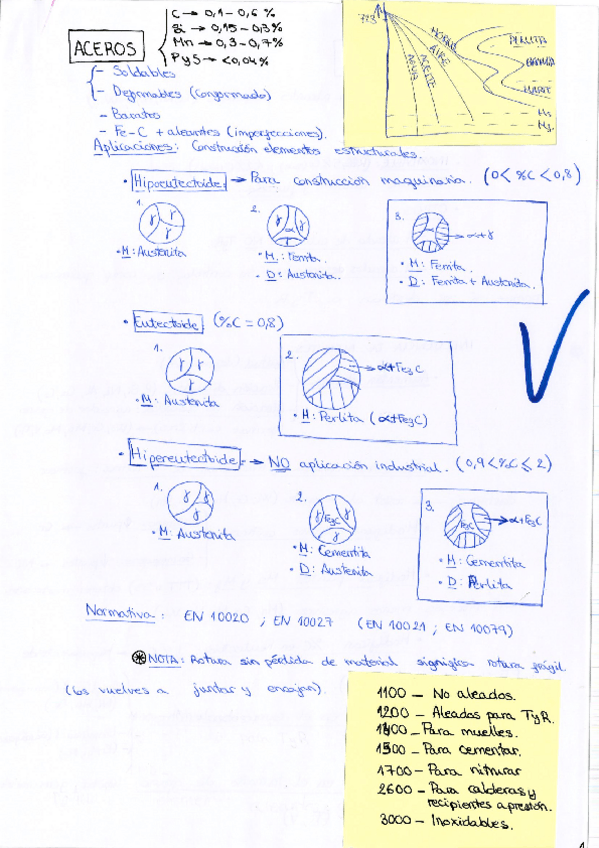 ACEROS
C → 0,1 - 0,6 %
Si → 0,15 - 0,3%
Mn → 0,3 - 0,7%
P y S → <0,04%
- Soldables
- Deformables (conformado)
- Baratos
- Fe-C + aleantes (imperfecciones).
723
HORNO
AIRE
ACEITE
AGUA
PERLITA
BAINITA
MARTE
Ms
Mf
Aplicaciones: Construcción elementos estructurales.
• Hipoeutectoide → Para construcción maquinaria. (0< %C < 0,8)
1.
γ γ γ
• M: Austenita
2.
γ γ α γ
• M: Ferrita.
• D: Austenita.
3.
→ α+γ
• M: Ferrita.
• D: Ferrita + Austenita.
• Eutectoide (%C = 0,8)
1.
γ γ γ
• M: Austenita
2.
→ α+Fe3C
• M: Perlita (α+Fe3C)
• Hipereutectoide → NO aplicación industrial. (0,9 < %C ≤ 2)
1.
γ γ γ
• M: Austenita
2.
γ Fe3C γ γ
• M: Cementita
• D: Austenita
3.
Fe3C
→ α+Fe3C
• M: Cementita
• D: Perlita
Normativa: EN 10020 ; EN 10027 (EN 10021 ; EN 10079)
⊛ NOTA: Rotura sin pérdida de material significa rotura frágil.
(los vuelves a juntar y encajan).
1100 - No aleados.
1200 - Aleados para T y R.
1400 - Para muelles.
1500 - Para cementar.
1700 - Para nitrurar
2600 - Para calderas y
recipientes a presión.
3000 - Inoxidables.